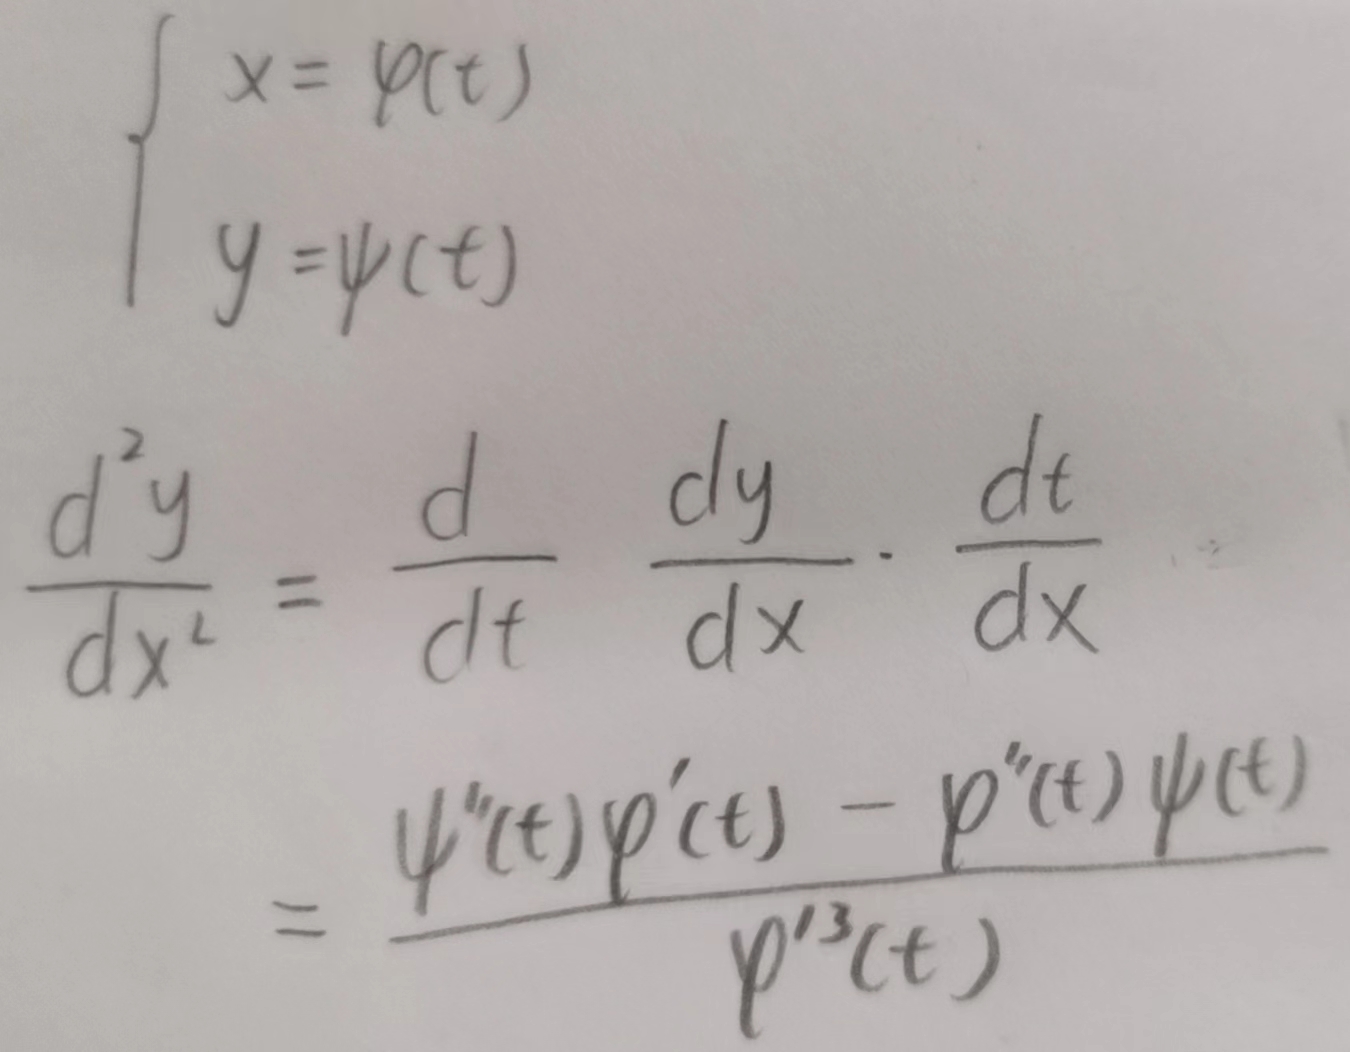 { x = φ(t)
y = ψ(t)
d²y/dx² = d/dt dy/dx · dt/dx
= (ψ''(t)φ'(t) − φ''(t)ψ(t))/φ'³(t)